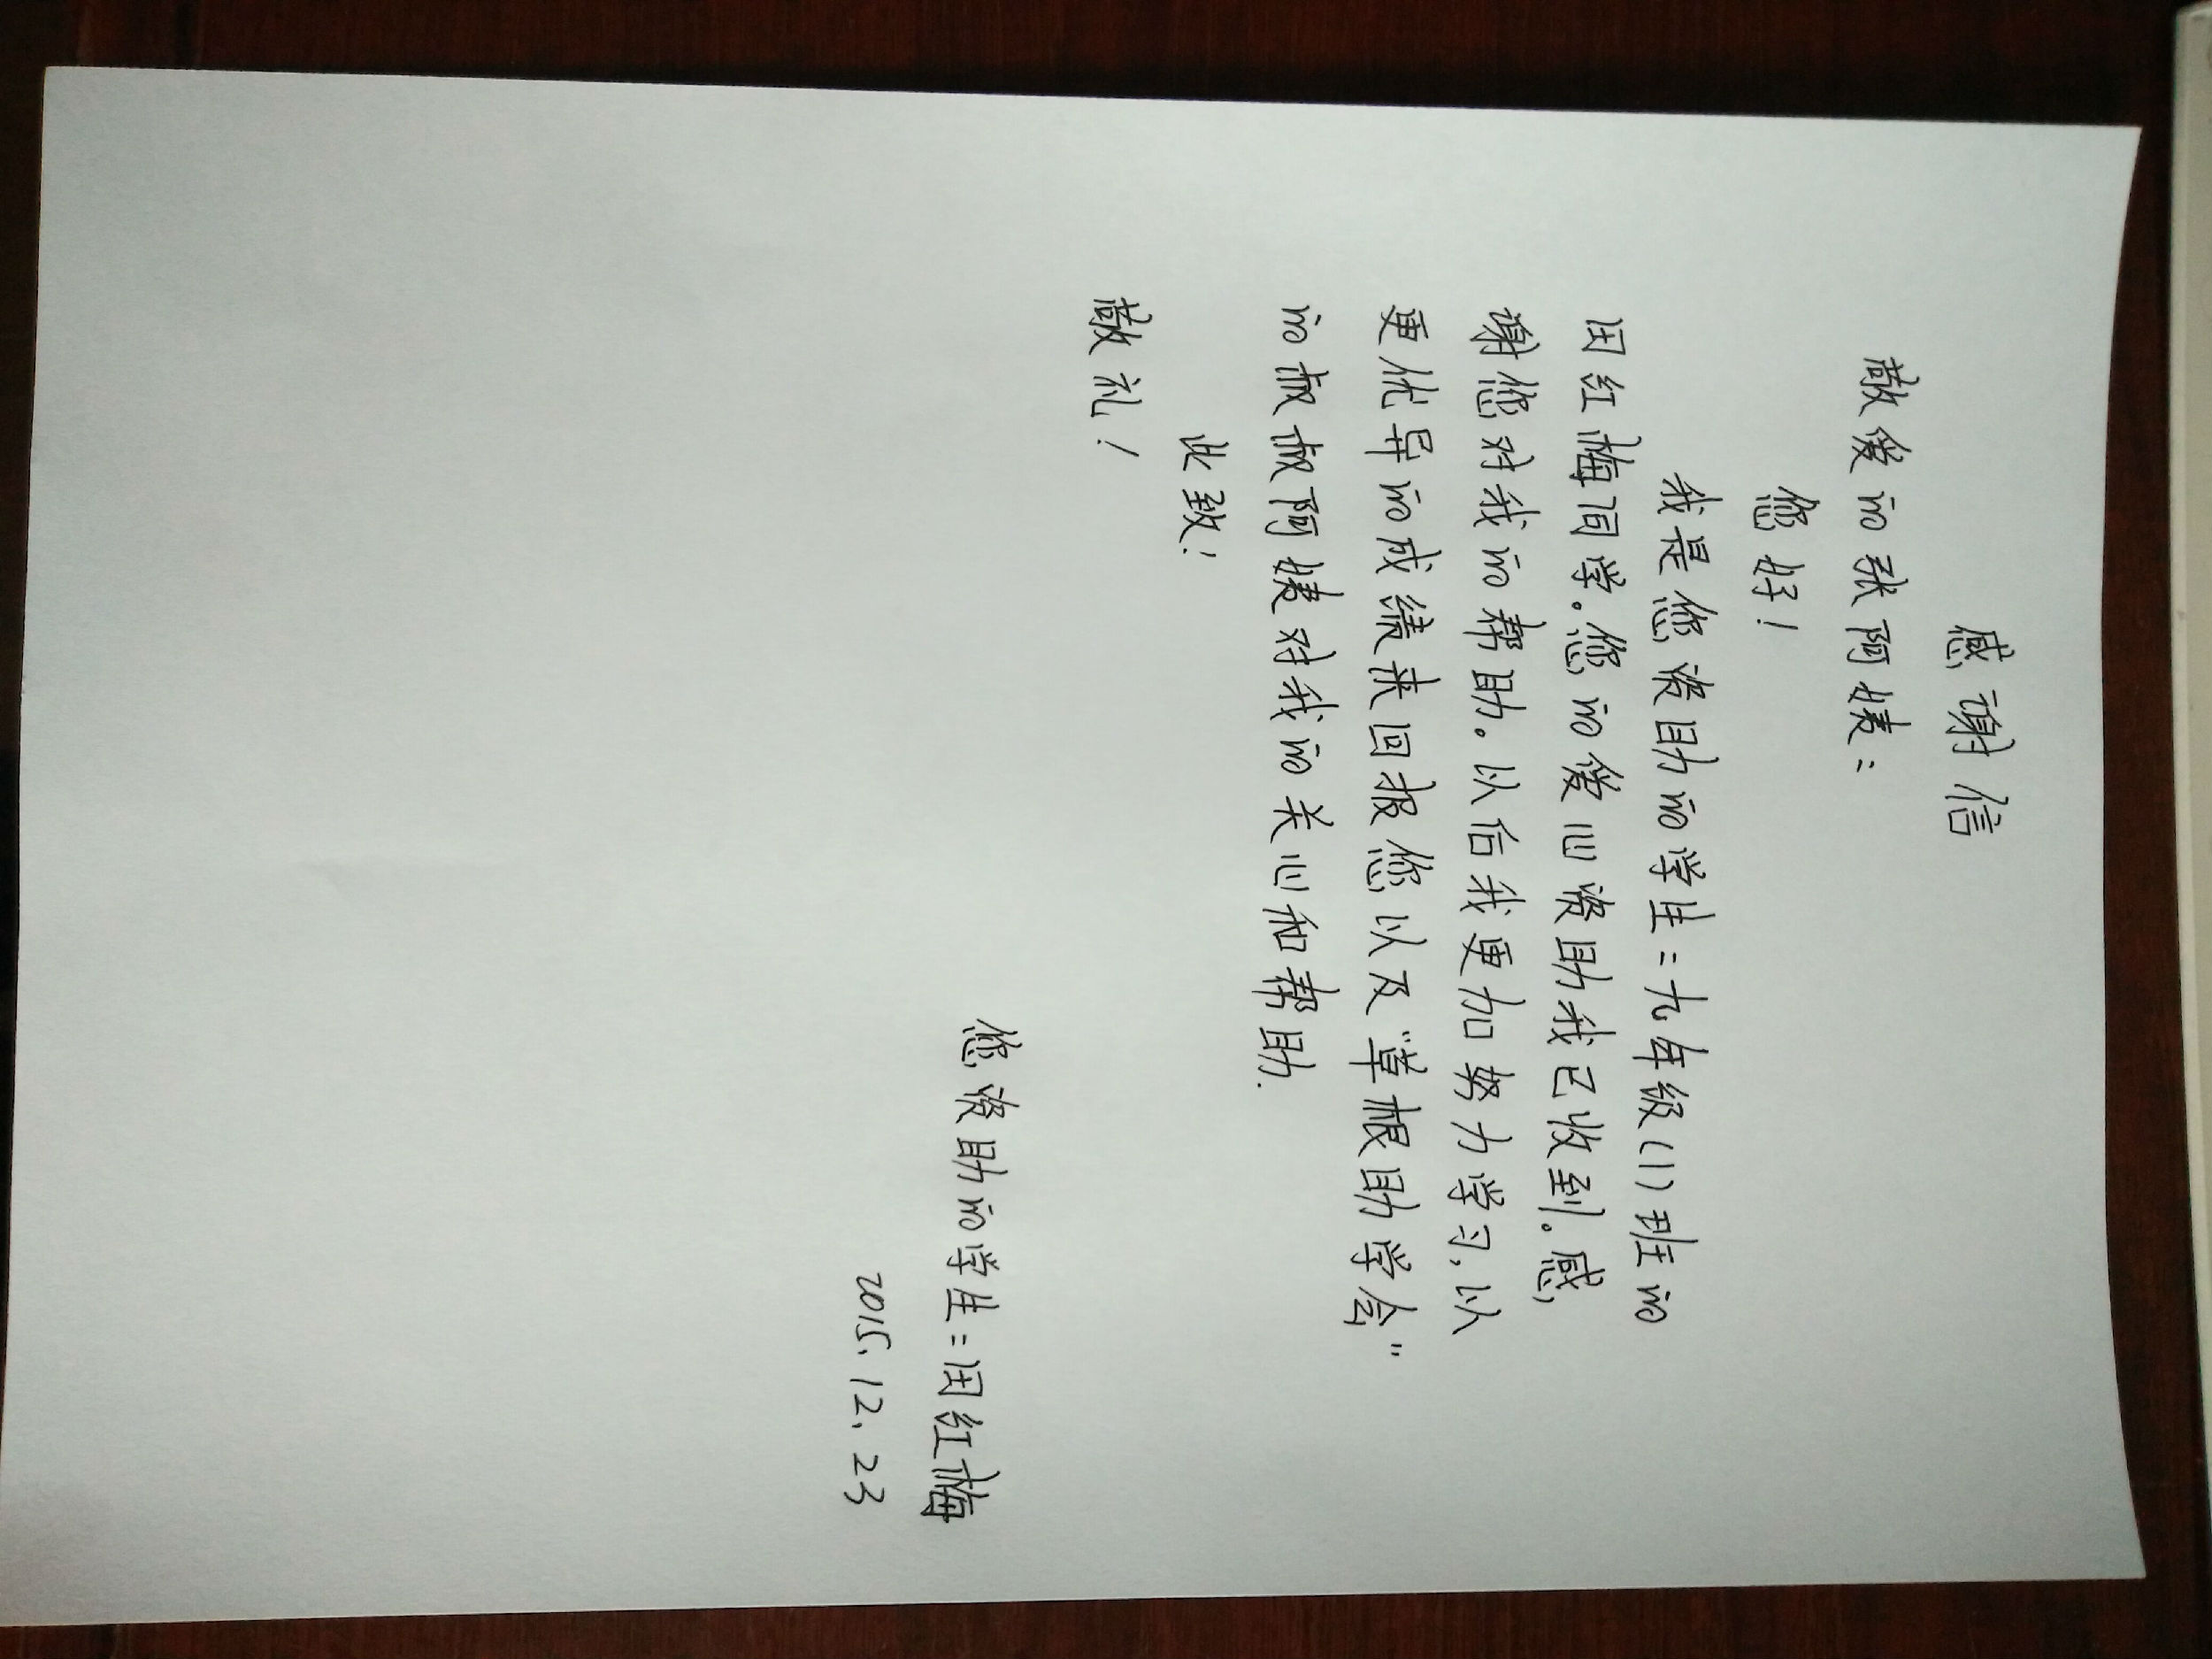 感谢信
敬爱的张阿姨：
您好！
我是您资助的学生：九年级(1)班的
田红梅同学。您的爱心资助我已收到。感
谢您对我的帮助。以后我更加努力学习，以
更优异的成绩来回报您以及“草根助学会”
的叔叔阿姨对我的关心和帮助.
此致！
敬礼！
您资助的学生：田红梅
2015.12.23